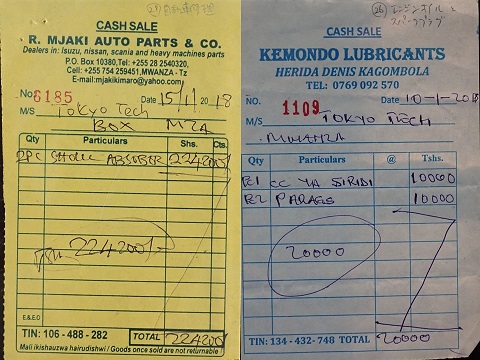 CASH SALE
R. MJAKI AUTO PARTS & CO.
Dealers in: Isuzu, nissan, scania and heavy machines parts
P.O. Box 10380, Tel: +255 28 2540320,
Cell: +255 754 259451, MWANZA - Tz
E-mail: mjakikimaro@yahoo.com
No 6185 Date 15/1/2018
M/S Tokyo Tech
BOX MZA
Qty Particulars Shs. Cts.
2PC ABSOBER 224200/=
224200/=
E.&.O.E
TIN: 106 - 488 - 282 TOTAL 224200
Mali ikishauzwa hairudishwi / Goods once sold are not returnable !
(26) エンジンオイルと
スパークプラグ
CASH SALE
KEMONDO LUBRICANTS
HERIDA DENIS KAGOMBOLA
TEL: 0769 092 570
NO. 1109 Date 10-1-2018
M/S TOKYO TECH
MWANZA
Qty Particulars @ Tshs.
CC YA 10000
10000
20000
TIN: 134 - 432 - 748 TOTAL 20000